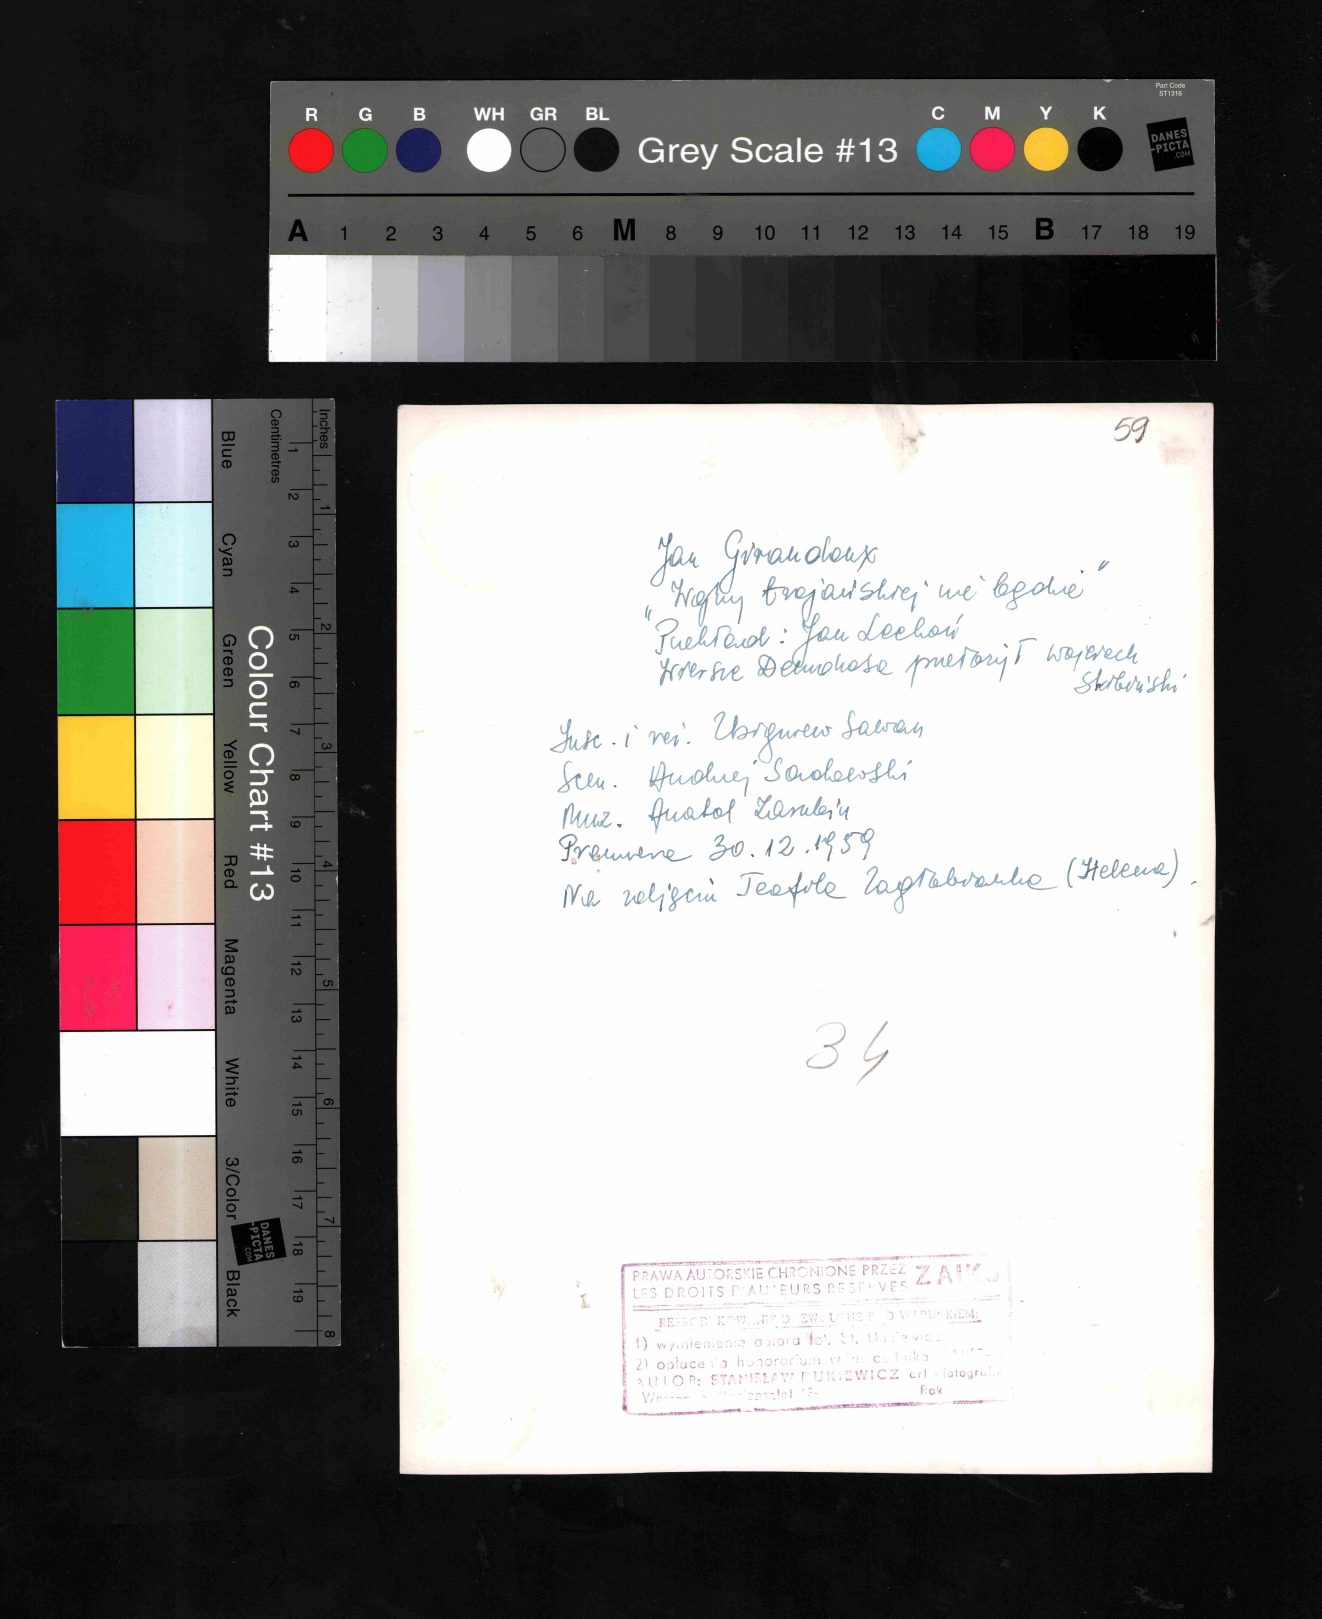 Part Code
ST1316
R G B WH GR BL Grey Scale #13 C M Y K
DANES
-PICTA
.COM
A 1 2 3 4 5 6 M 8 9 10 11 12 13 14 15 B 17 18 19
Colour Chart #13
Blue Cyan Green Yellow Red Magenta White 3/Color Black
Centimetres
1 2 3 4 5 6 7 8 9 10 11 12 13 14 15 16 17 18 19
Inches
1 2 3 4 5 6 7 8
DANES
-PICTA
.COM
59
Jan Giraudoux
„Wojny trojańskiej nie będzie"
Przekład: Jan Lechoń
Wiersze Demokosa przełożył Wojciech
Skibiński
Insc. i reż. Zbigniew Sawan
Scen. Andrzej Sadowski
Muz. Anatol Zarubin
Premiera 30.12.1959
Na zdjęciu Teofila Zagłobianka (Helena).
34
PRAWA AUTORSKIE CHRONIONE PRZEZ ZAIKS
LES DROITS D'AUTEURS RESERVES
1) wymienienia autora fot. St.
2) opłacenia honorarium
AUTOR: STANISŁAW DUKIEWICZ art-fotograf
Rok